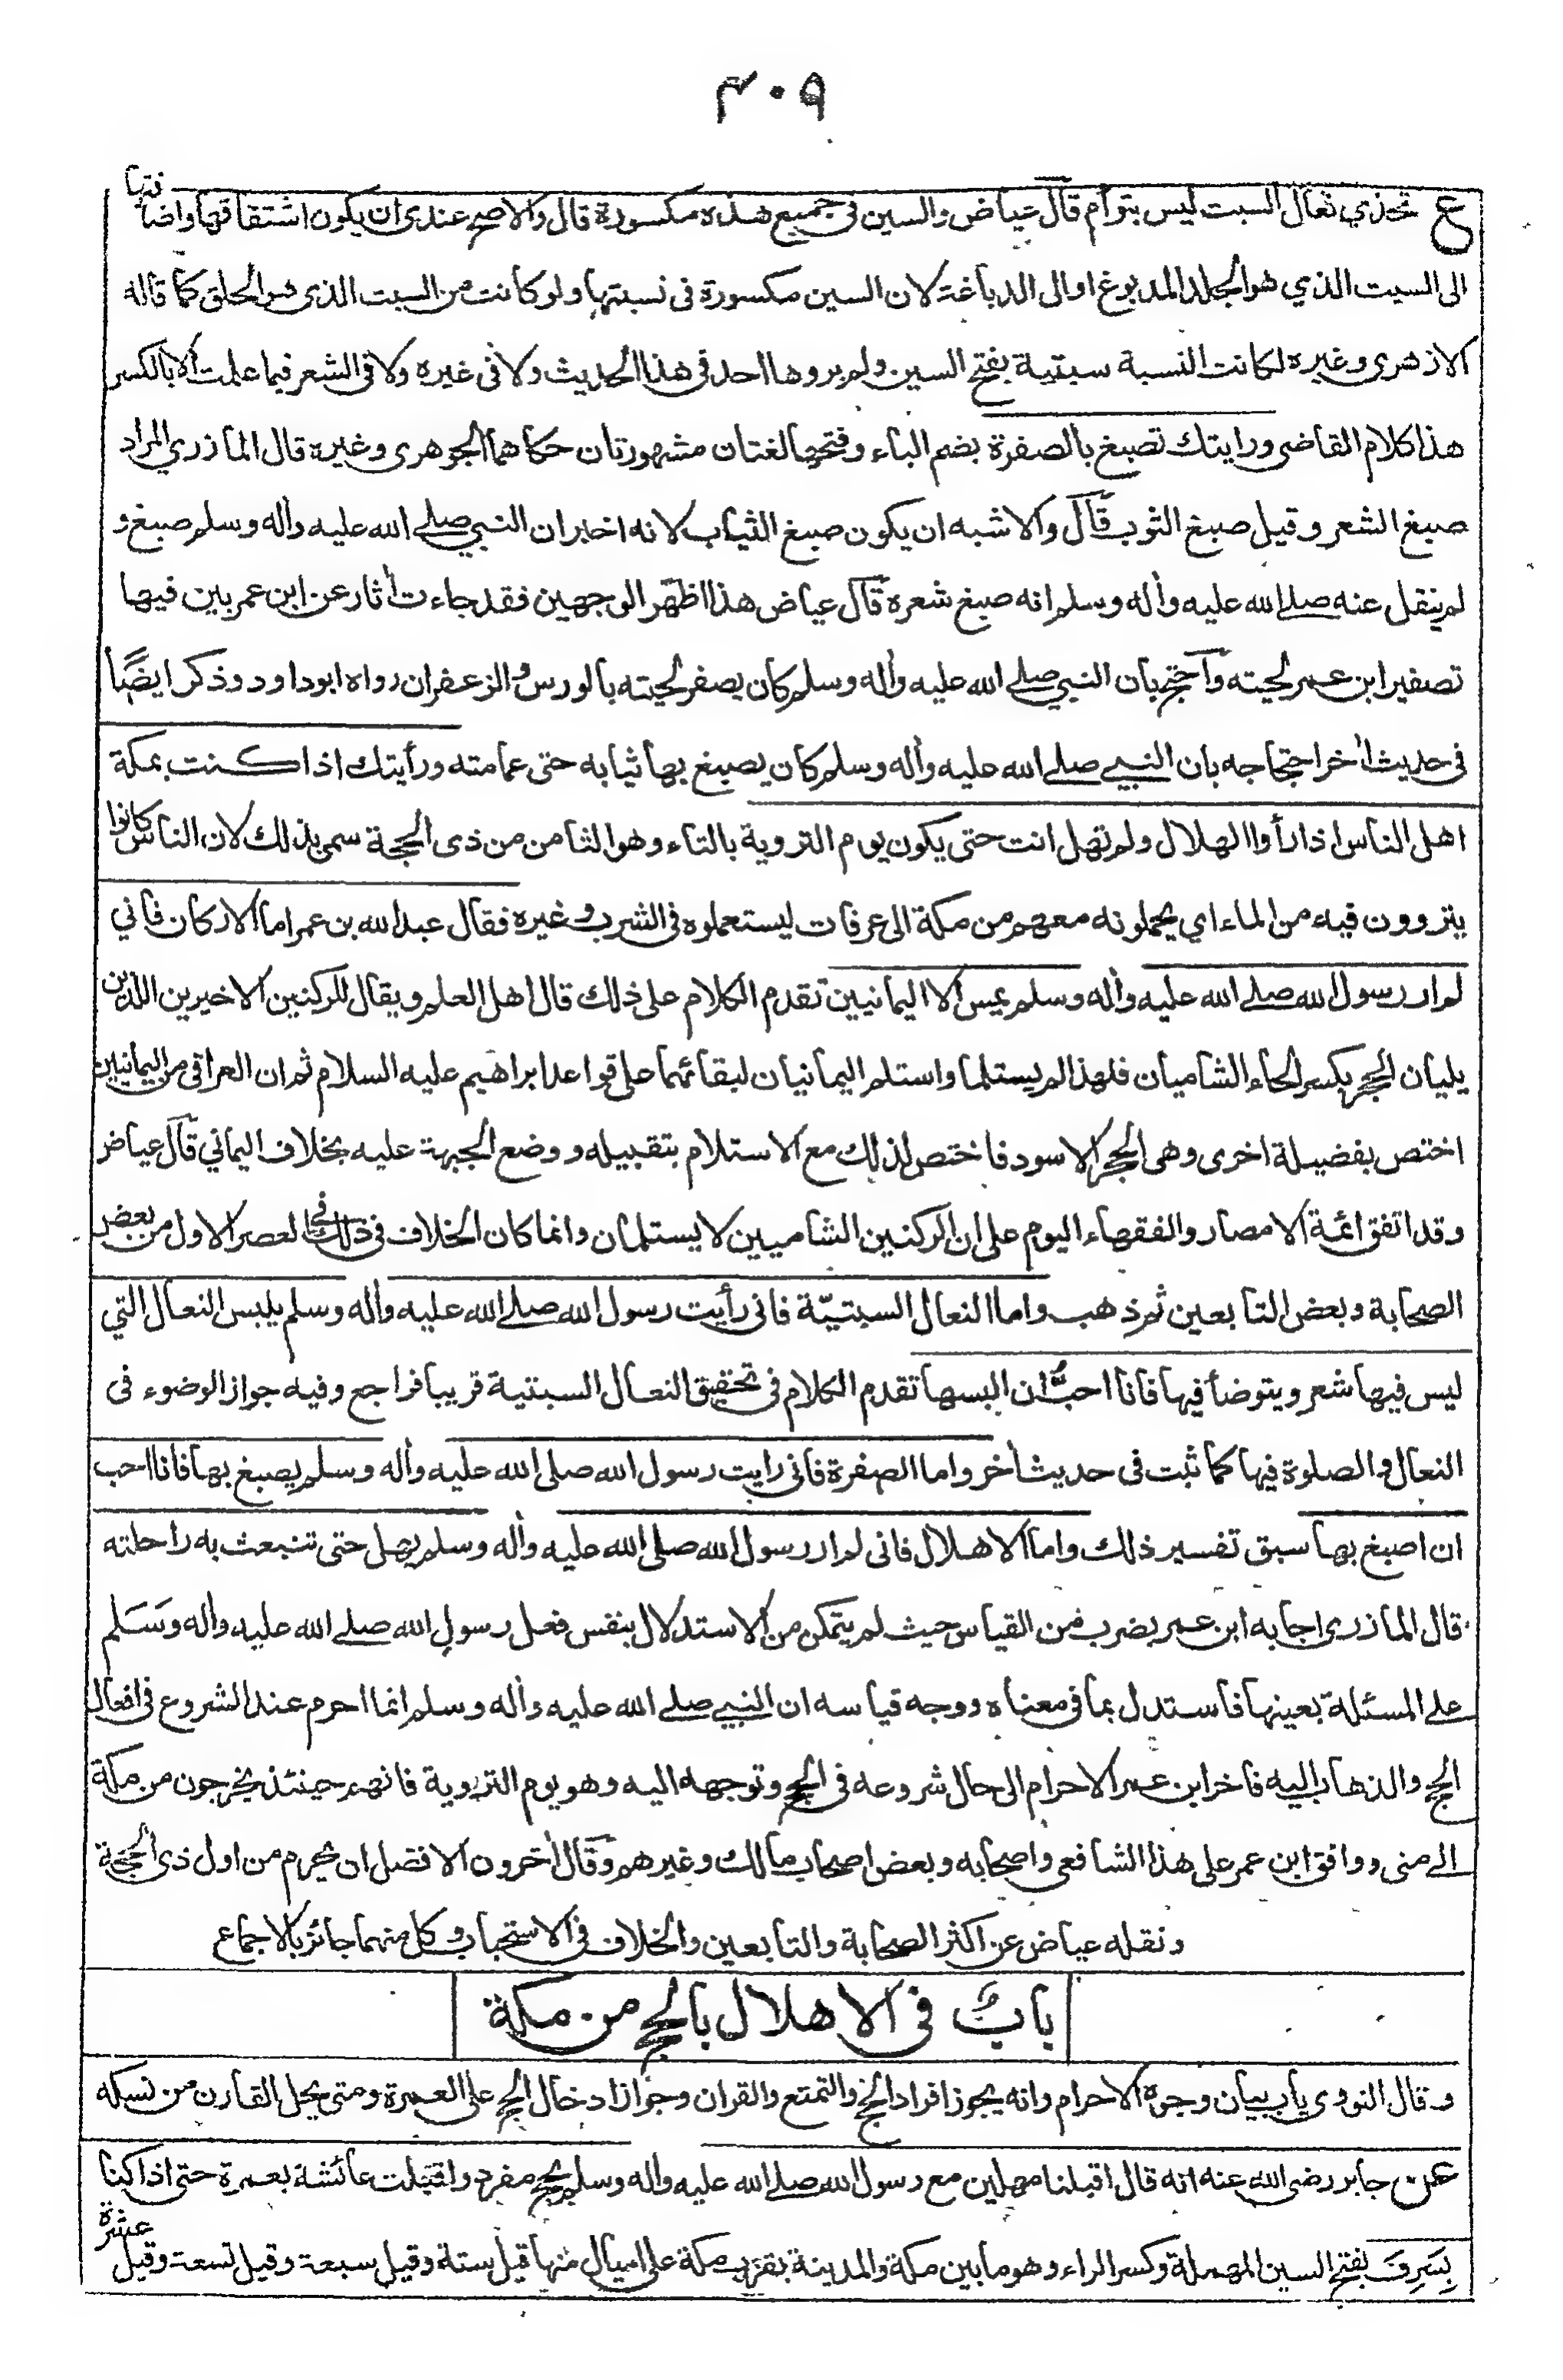 ٣٠٩
ع تحذى نعال السبت ليس بتوأم قال عياض والسين فى جميع هذه مكسورة قال والاصح عندى ان يكون اشتقاقها واضافتها
الى السبت الذي هو الجلد المدبوغ او الى الدباغة لان السين مكسورة فى نسبتها ولو كانت من السبت الذى هو الحلق كما قاله
الازهرى وغيره لكانت النسبة سبتية بفتح السين ولم يروها احد فى هذا الحديث ولا فى غيره ولا فى الشعر فيما علمت الا بالكسر
هذا كلام القاضى ورايتك تصبغ بالصفرة بضم الباء وفتحها لغتان مشهورتان حكاهما الجوهرى وغيره قال المازري المراد
صبغ الشعر وقيل صبغ الثوب قال والاشبه ان يكون صبغ الثياب لانه اخبر ان النبي صلے الله عليه وأله وسلم صبغ و
لم ينقل عنه صلے الله عليه وأله وسلم انه صبغ شعره قال عياض هذا اظهر الوجهين فقد جاءت أثار عن ابن عمر بين فيها
تصفير ابن عمر لحيته وآحتج بان النبي صلے الله عليه وأله وسلم كان يصفر لحيته بالورس والزعفران رواه ابوداود وذكر ايضًا
فى حديث أخر احتجاجه بان النبيے صلے الله عليه وأله وسلم كان يصبغ بها ثيابه حتى عمامته ورأيتك اذا كنت بمكة
اهل الناس اذا رأوا الهلال ولم تهل انت حتى يكون يوم التروية بالتاء وهو الثامن من ذى الحجة سمى بذلك لان الناس كانوا
يتروون فيه من الماء اي يحملونه معهم من مكة الى عرفات ليستعملوه فى الشرب وغيره فقال عبد الله بن عمر اما الاركان فاني
لم ار رسول الله صلے الله عليه وأله وسلم يمس الا اليمانيين تقدم الكلام على ذلك قال اهل العلم ويقال للركنين الاخيرين اللذين
يليان الحجر بكسر الحاء الشاميان فلهذا لم يستلما واستلم اليمانيان لبقائهما على قواعد ابراهيم عليه السلام ثم ان العراقى من اليمانيين
اختص بفضيلة اخرى وهى الحجر الاسود فاختص لذلك مع الاستلام بتقبيله ووضع الجبهة عليه بخلاف اليماني قال عياض
وقد اتفق ائمة الامصار والفقهاء اليوم على ان الركنين الشاميين لا يستلمان وانما كان الخلاف فى ذلك فى العصر الاول من بعض
الصحابة وبعض التابعين ثم ذهب واما النعال السبتيّة فانى رأيت رسول الله صلے الله عليه وأله وسلم يلبس النعال التي
ليس فيها شعر ويتوضأ فيها فانا احبُّ ان البسها تقدم الكلام فى تحقيق النعال السبتية قريبا فراجع وفيه جواز الوضوء فى
النعال والصلوة فيها كما ثبت فى حديث أخر واما الصفرة فانى رايت رسول الله صلى الله عليه وأله وسلم يصبغ بها فانا احب
ان اصبغ بها سبق تفسير ذلك واما الاهلال فانى لم ار رسول الله صلى الله عليه وأله وسلم يهل حتى تنبعث به راحلته
قال المازرى اجابه ابن عمر بضرب من القياس حيث لم يتمكن من الاستدلال بنفس فعل رسول الله صلے الله عليه واله وسَلم
علے المسئلة بعينها فاستدل بما فى معناه ووجه قياسه ان النبيے صلے الله عليه وأله وسلم انما احرم عند الشروع فى افعال
الحج والذهاب اليه فاخر ابن عمر الاحرام الى حال شروعه فى الحج وتوجهه اليه وهو يوم التروية فانهم حينئذ يخرجون من مكة
الے منى ووافق ابن عمر على هذا الشافعى واصحابه وبعض اصحاب مالك وغيرهم وقال أخرون الافضل ان يحرم من اول ذى الحجة
ونقله عياض عن اكثر الصحابة والتابعين والخلاف فى الاستحباب وكل منهما جائز بالاجماع
بابٌ فى الاهلال بالحج من مكة
وقال النووى باب بيان وجوه الاحرام وانه يجوز افراد الحج والتمتع والقران وجواز ادخال الحج على العمرة ومتى يحل القارن من نسكه
عن جابر رضى الله عنه انه قال اقبلنا مهلين مع رسول الله صلے الله عليه واله وسلم بحج مفرد واقبلت عائشة بعمرة حتى اذا كنا
بِسَرِفَ بفتح السين المهملة وكسر الراء وهو ما بين مكة والمدينة بقرب مكة على اميال منها قيل ستة وقيل سبعة وقيل تسعة وقيل عشرة